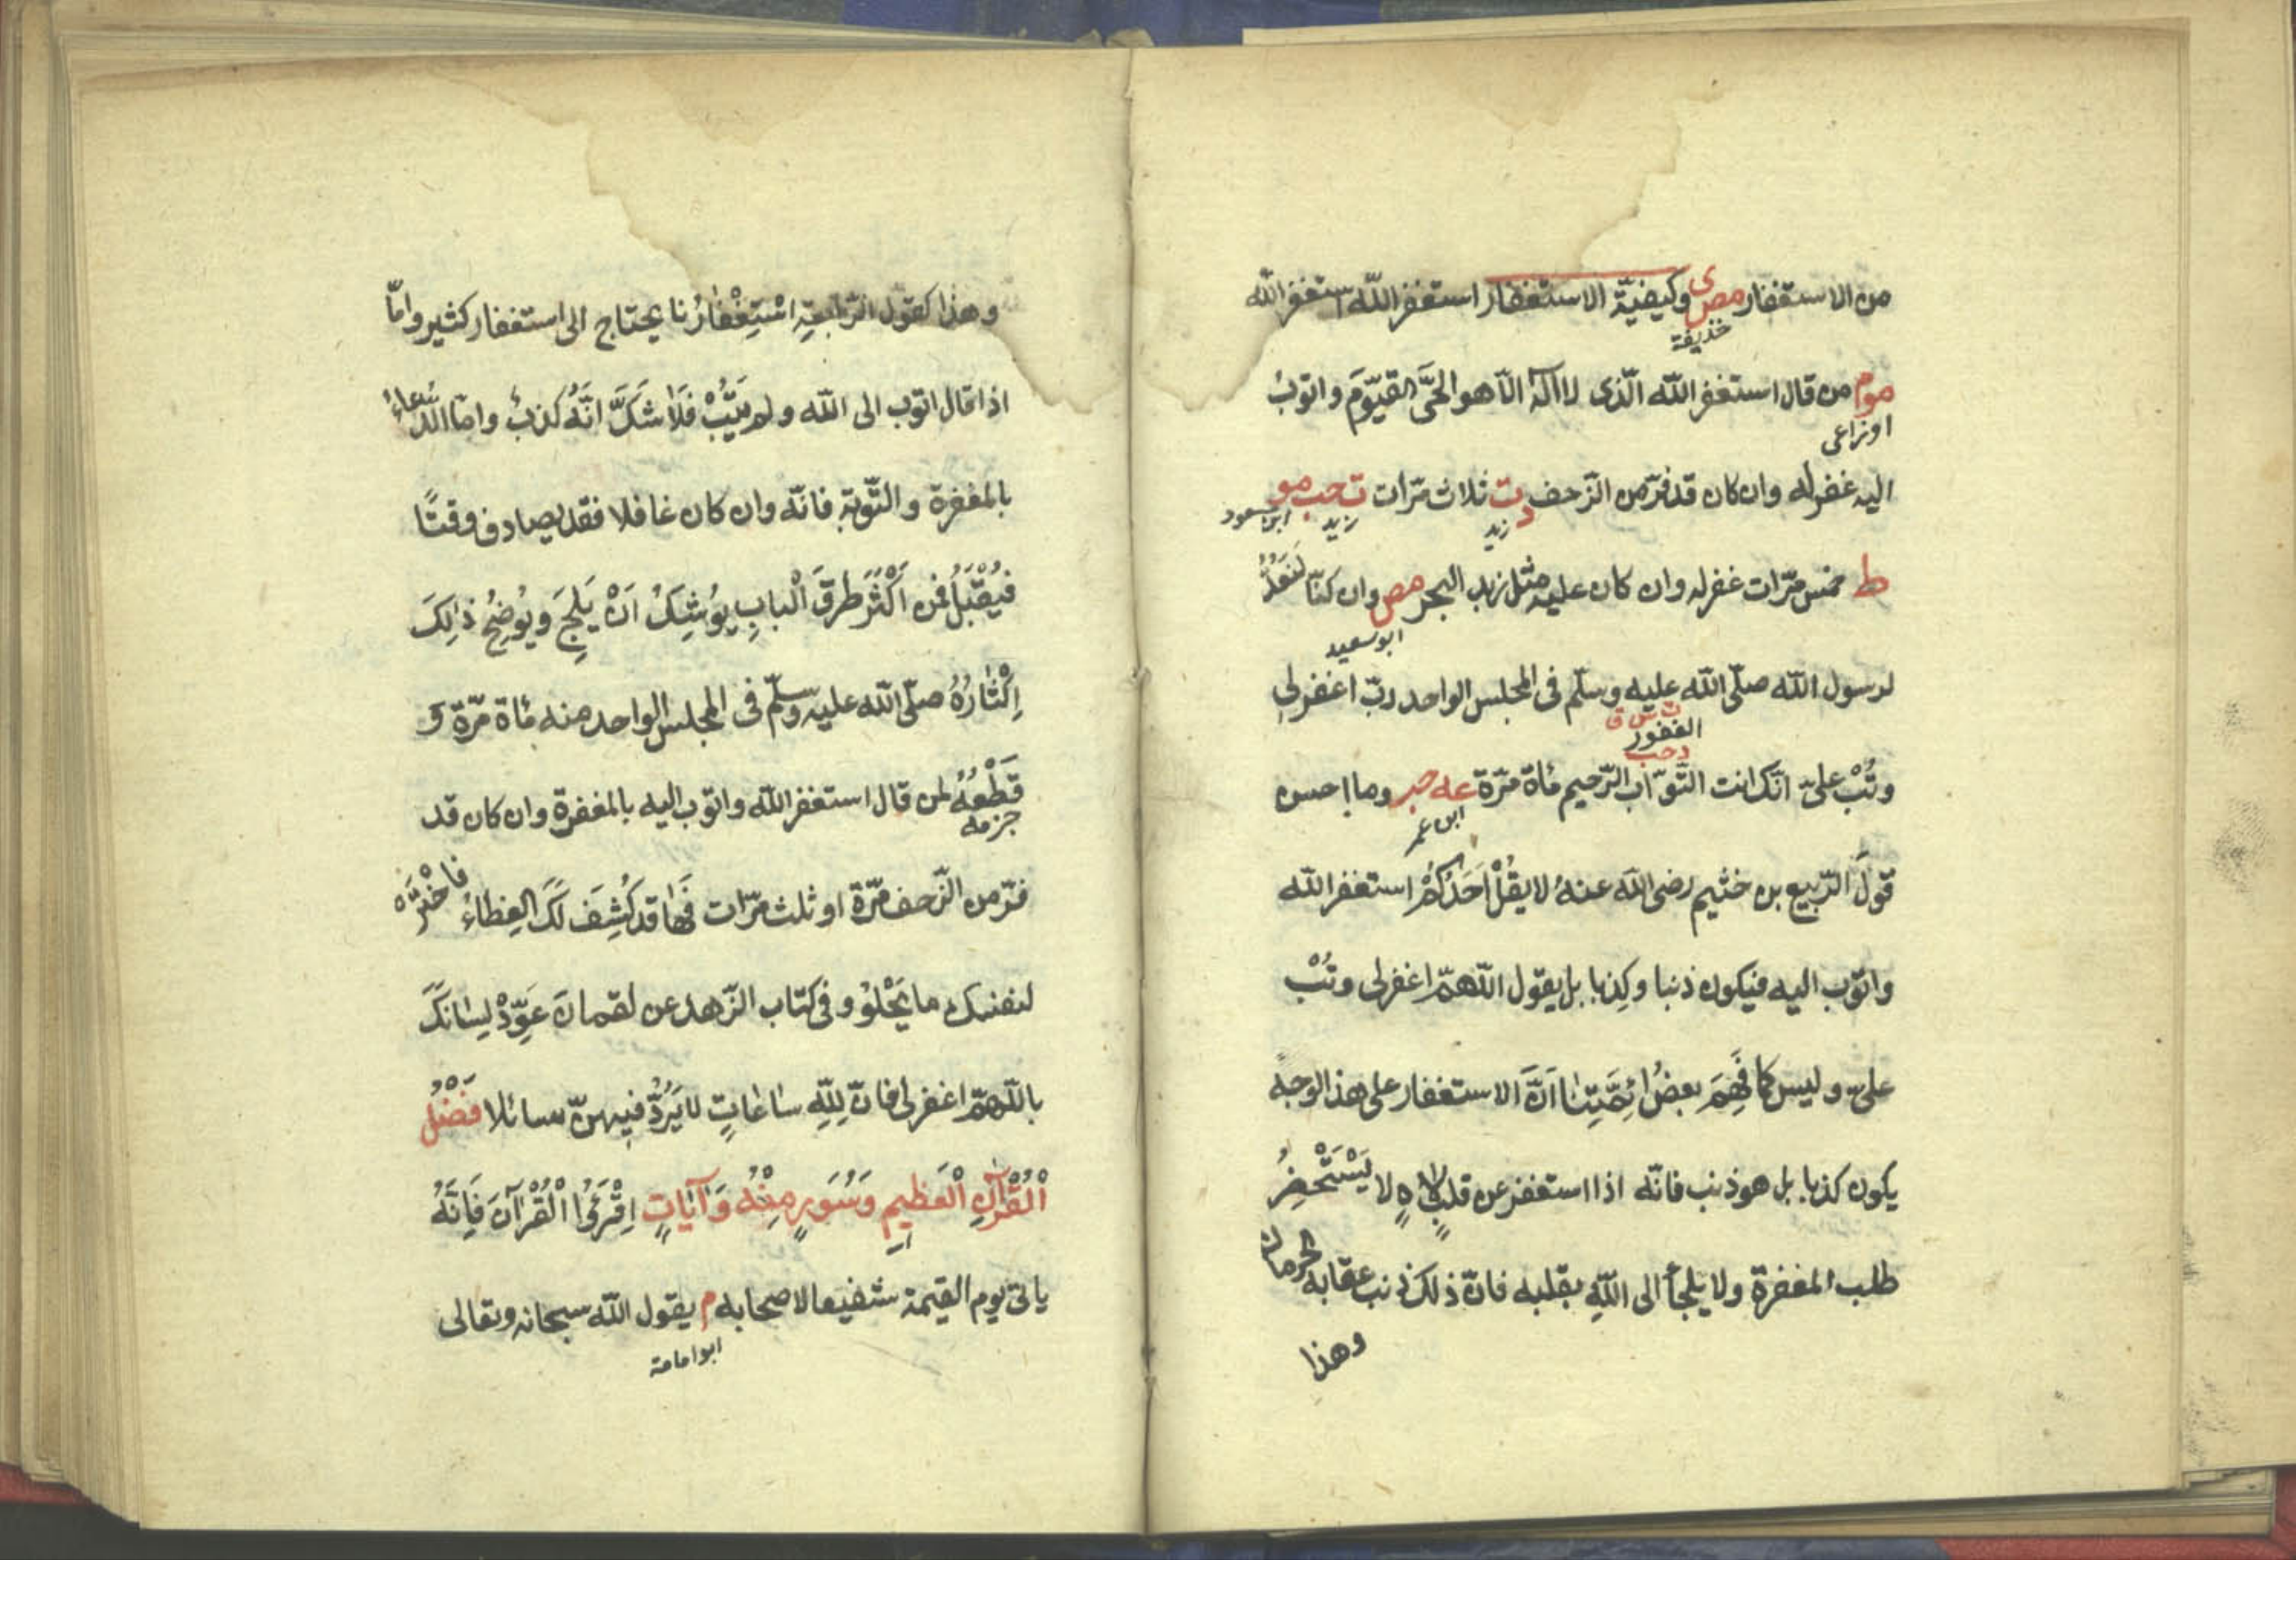 من الاستغفار مص ى وكيفيّة الاستغفار استغفر اللّه استغفر اللّه
حذيفة
موم من قال استغفر اللّه الّذى لا اله الّا هو الحىَّ القيّومَ واتوبُ
اوزاعى
اليه غفر له وان كان قد فرّ من الزّحف د ت ثلاث مرّات ت حب مو
زيد زيد ابن مسعود
ط خمس مرّات غفر له وان كان عليه مثل زبد البحر مص وان كنّا لَنَعُدُّ
ابو سعيد
لرسول اللّه صلّى اللّه عليه وسلّم فى المجلس الواحد ربّ اغفر لى
ت س ق
الغفور
د حب
وتُبْ علىّ انّك انت التّوّاب الرّحيم مأة مرّة عه حبر وما احسن
ابن عمر
قولَ الرّبيع بن خثيم رضى اللّه عنهُ لا يقُلْ اَحَدُكُمْ استغفر اللّه
واتوب اليه فيكون ذنبا وكِذبا بل يقول اللّهمّ اغفر لى وتُبْ
علىّ وليس كما فَهِمَ بعضُ ائِمَّتِنٰا اَنَّ الاستغفار على هذا الوجهِ
يكون كذبا بل هو ذنب فانّه اذا استغفر عن قلبٍ لاهٍ لا يَسْتَحْضِرُ
طلب المغفرة ولا يلجأ الى اللّهِ بقلبه فانّ ذلك ذنب عقابه الحرمان
وهذا
وهذا كقول الرّابعةِ اسْتِغْفٰارُنا يحتاج الى استغفار كثير وامّا
اذا قال اتوب الى اللّه ولم يَتُبْ فَلَا شَكَّ انّهُ كذبٌ وامّا الدّعاءُ
بالمغفرة والتّوبةِ فانّه وان كان غافلا فقد يصادف وقتًا
فيُقْبَلُ فمن اَكْثَرَ طرقَ الْبابِ يوُشِكُ اَنْ يَلِجَ ويُوضِحُ ذٰلِكَ
اِكْثٰارُهُ صلّى اللّه عليه وسلّم فى المجلس الواحد منه مأة مرّة وَ
قَطْعُهُ لمن قال استغفر اللّه واتوب اليه بالمغفرة وان كان قد
جزمه
فرّ من الزّحف مرّة او ثلث مرّات فَهٰا قد كُشِفَ لَكَ الغِطاءُ فاخْتَرْ
لنفسك ما يَحْلوُ وفى كتاب الزّهد عن لقمانَ عَوِّدْ لِسٰانَكَ
باللّهمّ اغفر لى فانّ لِلّهِ سٰاعٰاتٍ لا يَرُدُّ فيهنّ سائلا فَضْلُ
الْقُرْآنِ الْعَظِيمِ وَسُوَرٍ مِنْهُ وَآيٰاتٍ اِقْرَؤُا الْقُرْآنَ فَاِنَّهُ
ياتى يوم القيمة شفيعا لاصحابه م يقول اللّه سبحانه وتعالى
ابو امامة